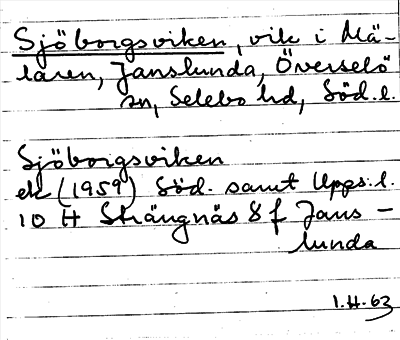 Sjöborgsviken, vik i Mä-
laren, Janslunda, Överselö
sn, Selebo hd, Söd. l.
Sjöborgsviken
ek (1959) Söd. samt Upps. l.
10 H Strängnäs 8 f Jans-
lunda
1.H.63